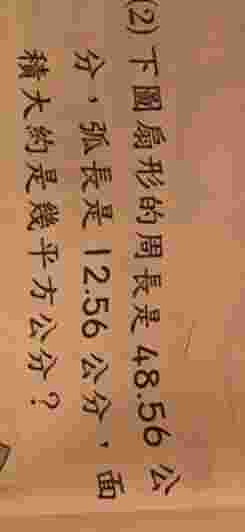 (2) 下圖扇形的周長是 48.56 公
分，弧長是 12.56 公分，面
積大約是幾平方公分？